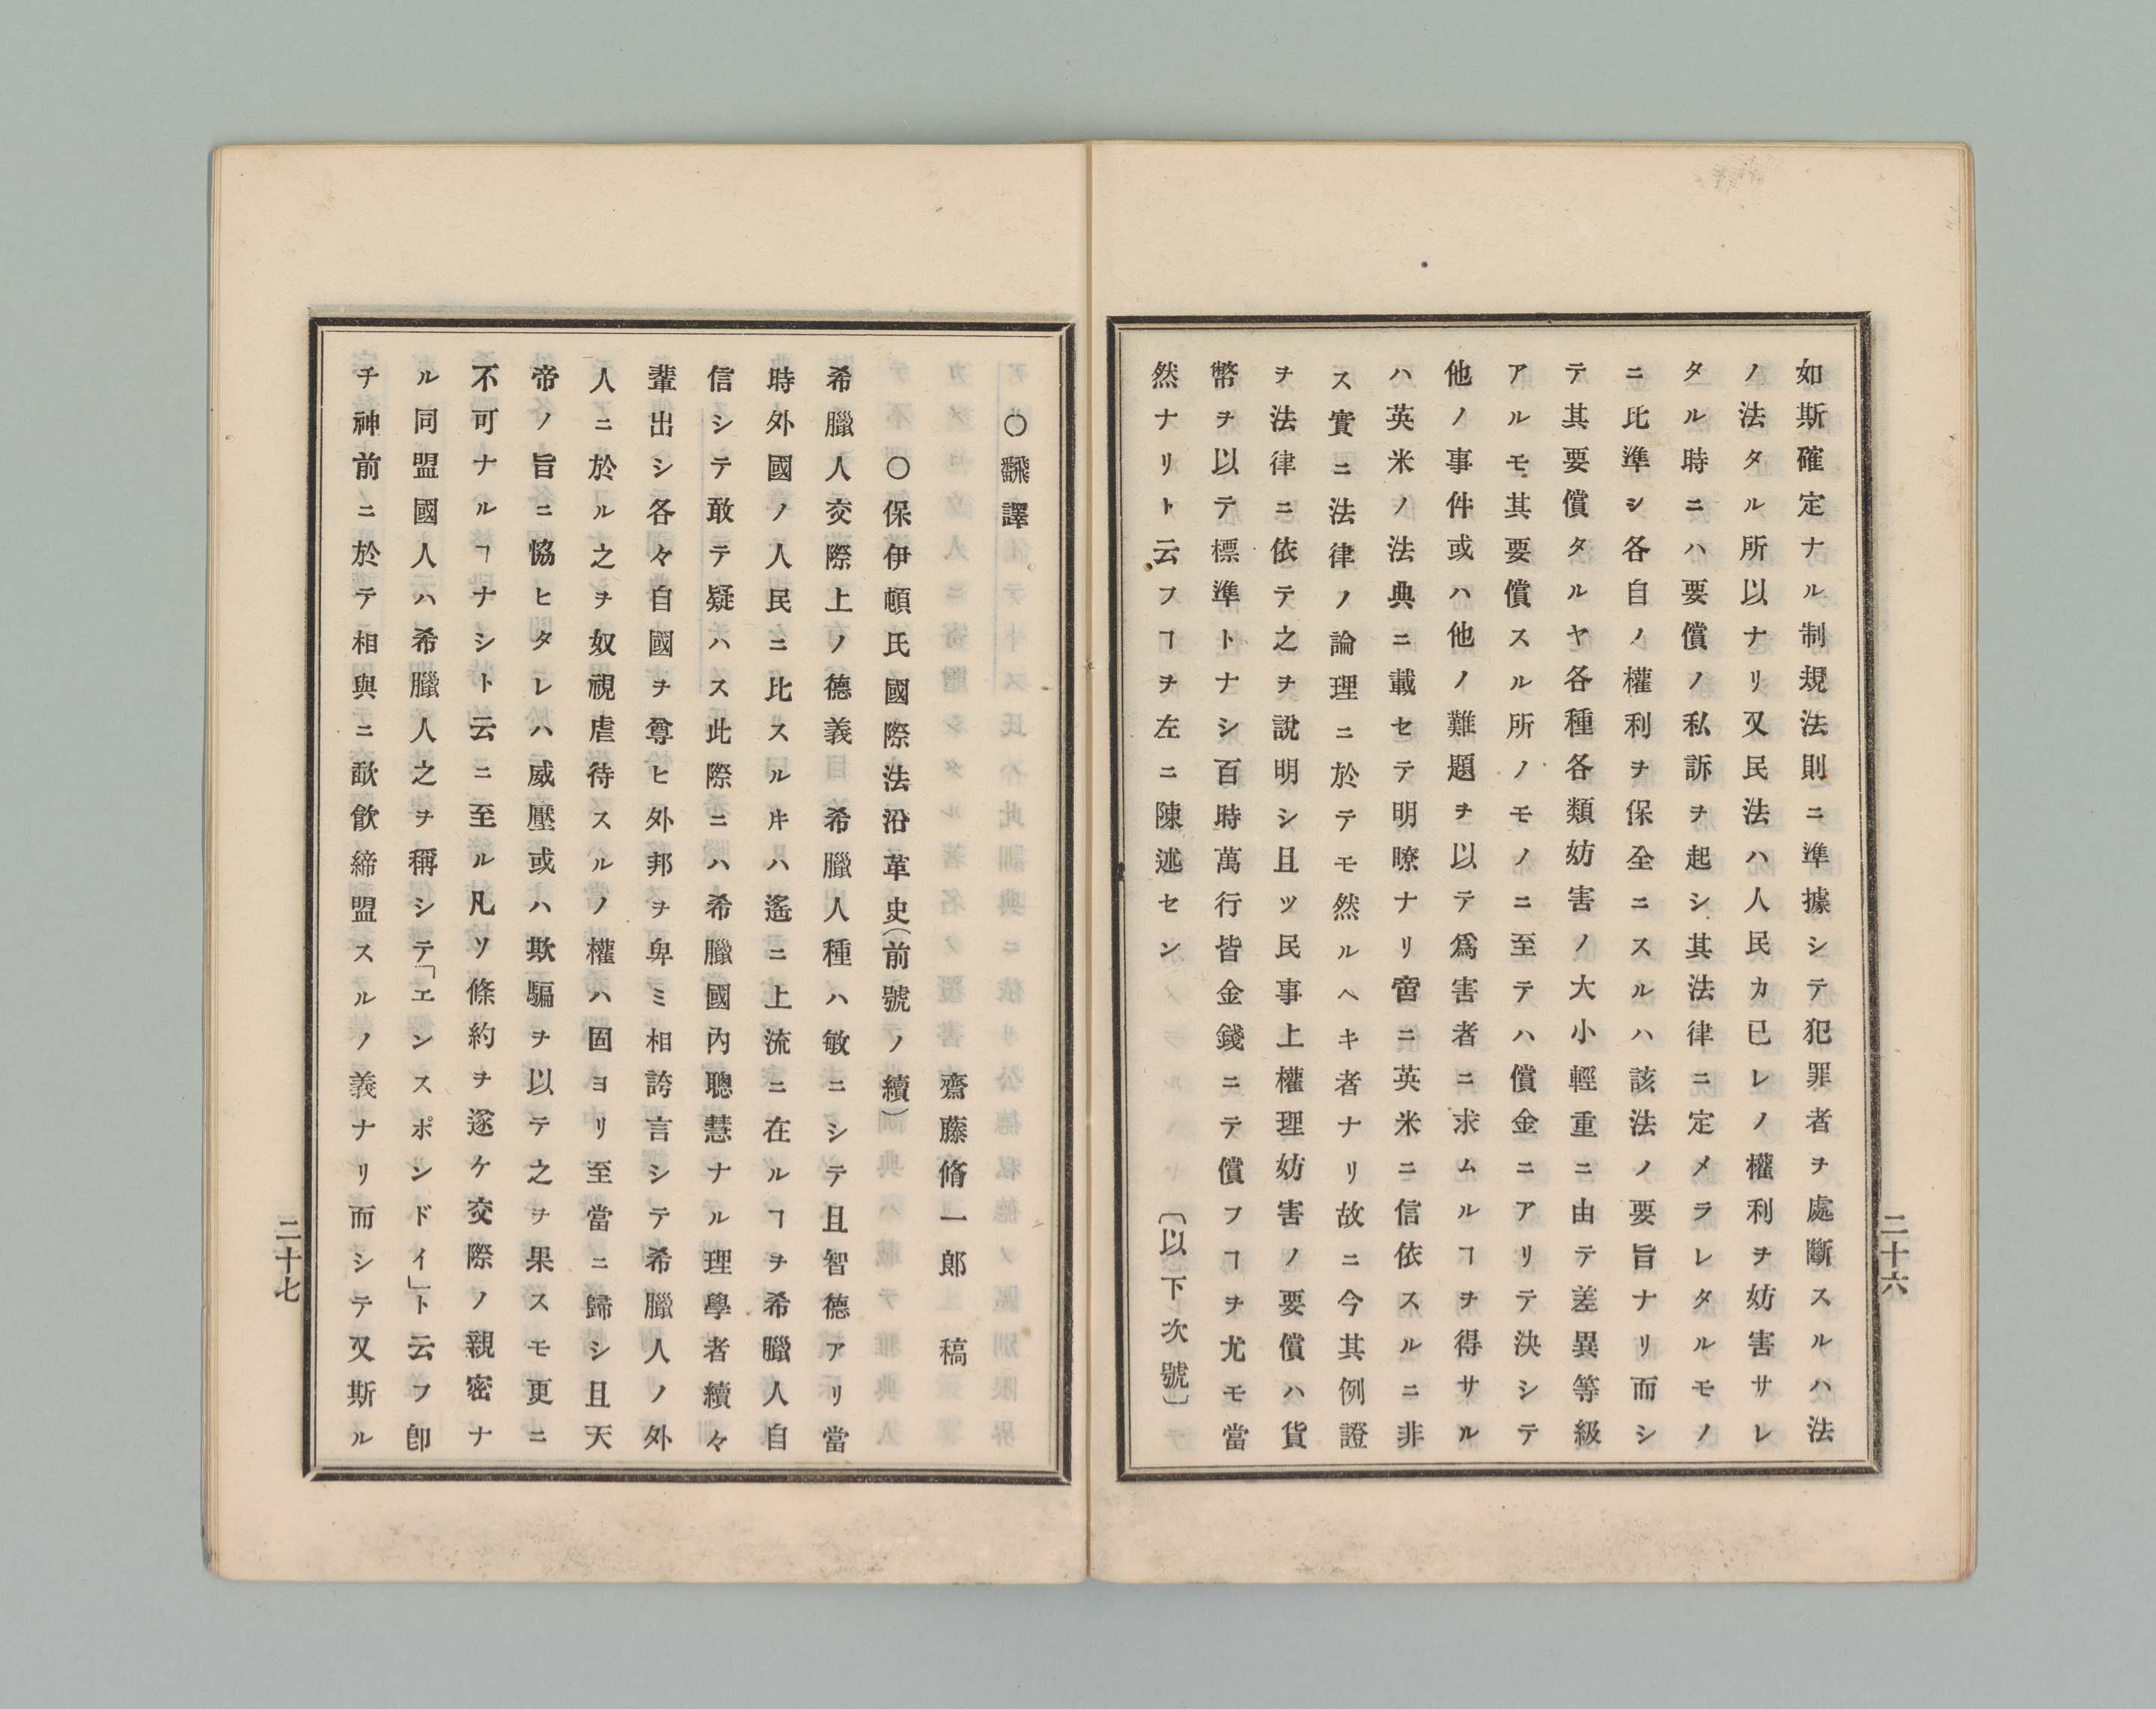 如斯確定ナル制規法則ニ準據シテ犯罪者ヲ處斷スルハ法
ノ法タル所以ナリ又民法ハ人民カ已レノ權利ヲ妨害サレ
タル時ニハ要償ノ私訴ヲ起シ其法律ニ定メラレタルモノ
ニ比準シ各自ノ權利ヲ保全ニスルハ該法ノ要旨ナリ而シ
テ其要償タルヤ各種各類妨害ノ大小輕重ニ由テ差異等級
アルモ其要償スル所ノモノニ至テハ償金ニアリテ決シテ
他ノ事件或ハ他ノ難題ヲ以テ爲害者ニ求ムルヿヲ得サル
ハ英米ノ法典ニ載セテ明瞭ナリ啻ニ英米ニ信依スルニ非
ス實ニ法律ノ論理ニ於テモ然ルヘキ者ナリ故ニ今其例證
ヲ法律ニ依テ之ヲ說明シ且ツ民事上權理妨害ノ要償ハ貨
幣ヲ以テ標準トナシ百時萬行皆金錢ニテ償フヿヲ尤モ當
然ナリト云フヿヲ左ニ陳述セン 〔以下次號〕
二十六
○飜譯
齋藤脩一郎 稿
○保伊頓氏國際法沿革史(前號ノ續)
希臘人交際上ノ德義 希臘人種ハ敏ニシテ且智德アリ當
時外國ノ人民ニ比スルキハ遙ニ上流ニ在ルヿヲ希臘人自
信シテ敢テ疑ハス此際ニハ希臘國內聰慧ナル理學者續々
輩出シ各々自國ヲ尊ヒ外邦ヲ卑ミ相誇言シテ希臘人ノ外
人ニ於ル之ヲ奴視虐待スルノ權ハ固ヨリ至當ニ歸シ且天
帝ノ旨ニ恊ヒタレハ威壓或ハ欺騙ヲ以テ之ヲ果スモ更ニ
不可ナルヿナシト云ニ至ル凡ソ條約ヲ遂ケ交際ノ親密ナ
ル同盟國人ハ希臘人之ヲ稱シテ「エンスポンドイ」ト云フ卽
チ神前ニ於テ相與ニ歃飮締盟スルノ義ナリ而シテ又斯ル
二十七